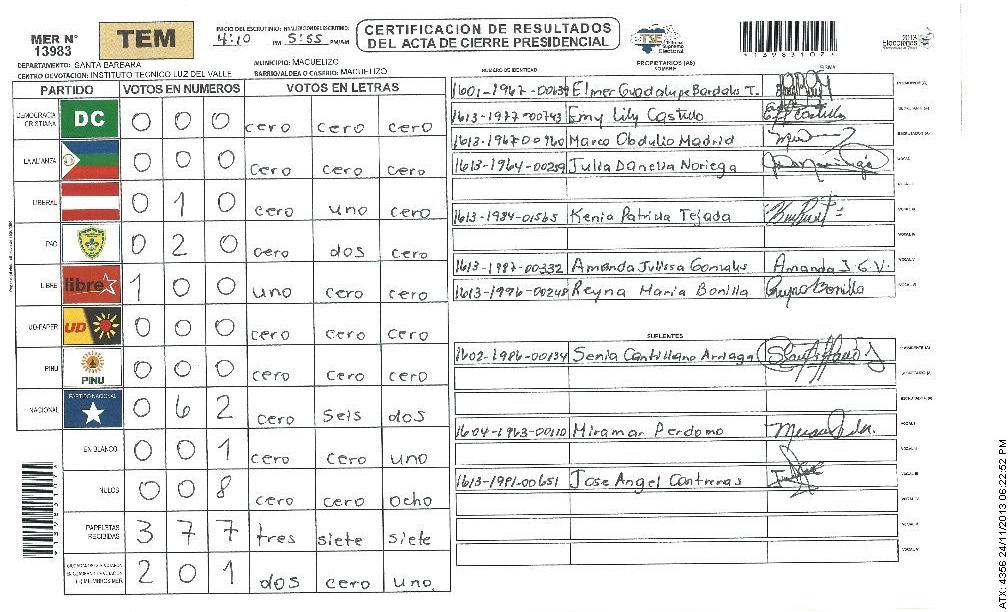 MER N°
13983
TEM
INICIO DEL ESCRUTINIO: FINALIZACION DEL ESCRUTINIO:
4:10 PM 5:55 PM/AM
CERTIFICACION DE RESULTADOS
DEL ACTA DE CIERRE PRESIDENCIAL
TSE
Tribunal
Supremo
Electoral
2013
Elecciones
DEPARTAMENTO: SANTA BARBARA
MUNICIPIO: MACUELIZO
CENTRO DE VOTACION: INSTITUTO TECNICO LUZ DEL VALLE
BARRIO/ALDEA O CASERIO: MACUELIZO
PARTIDO VOTOS EN NUMEROS VOTOS EN LETRAS
DEMOCRACIA CRISTIANA DC 0 0 0 cero cero cero
LA ALIANZA 0 0 0 cero cero cero
LIBERAL 0 1 0 cero uno cero
PAC 0 2 0 cero dos cero
LIBRE libre 1 0 0 uno cero cero
UD-FAPER UD 0 0 0 cero cero cero
PINU PINU 0 0 0 cero cero cero
NACIONAL PARTIDO NACIONAL 0 6 2 cero seis dos
EN BLANCO 0 0 1 cero cero uno
NULOS 0 0 8 cero cero ocho
PAPELETAS RECIBIDAS 3 7 7 tres siete siete
MIEMBROS MER 2 0 1 dos cero uno
PROPIETARIOS (AS)
NUMERO DE IDENTIDAD NOMBRE FIRMA
1601-1967-00639 Elmer Guadalupe Bardales T. PRESIDENTE(A)
1613-1977-00743 Emy Lily Castillo Castillo SECRETARIO (A)
1613-1967-00960 Marco Obdulio Madrid ESCRUTADOR (A)
1613-1964-00259 Julia Danelia Noriega VOCAL I
VOCAL II
1613-1984-01565 Kenia Patricia Tejada VOCAL III
VOCAL IV
1613-1987-00332 Amanda Julissa Gonzales Amanda J.G.V. VOCAL V
1613-1996-00248 Reyna Maria Bonilla Reyna Bonilla VOCAL VI
SUPLENTES
1602-1986-00134 Senia Cantillano Arriaga PRESIDENTE (A)
SECRETARIO (A)
ESCRUTADOR (A)
1604-1963-00110 Miramar Perdomo VOCAL I
VOCAL II
1613-1981-00651 Jose Angel Contreras VOCAL III
VOCAL IV
VOCAL V
VOCAL VI
ATX: 4356 24/11/2013 06:22:52 PM